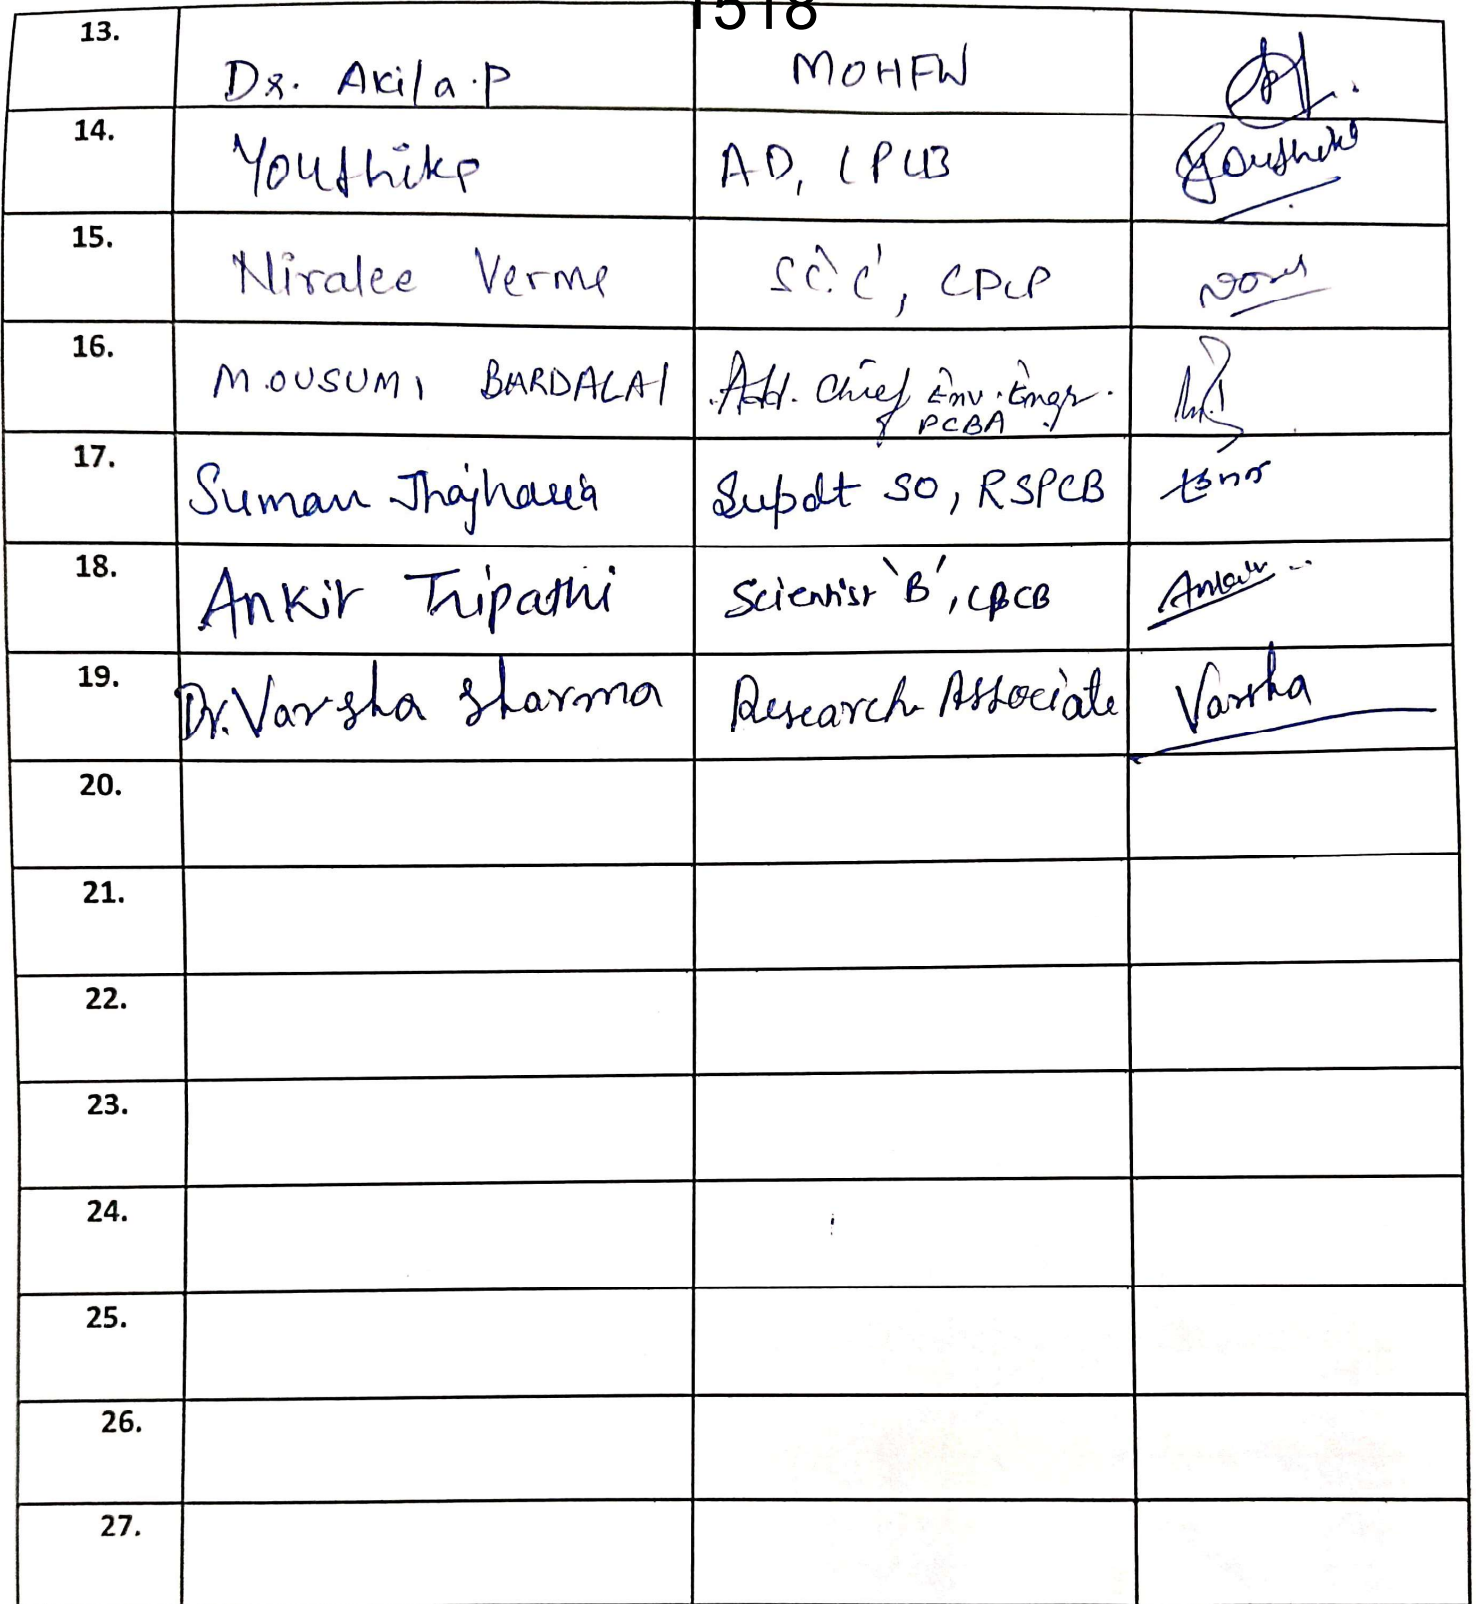 1518
13. Dr. Akila.P MOHFW
14. Youthika AD, CPCB
15. Niralee Verma Sc. 'C', CPCB
16. MOUSUMI BARDALAI Add. Chief Env. Engr.
PCBA
17. Suman Jhajharia Supdt SO, RSPCB
18. Ankit Tripathi Scientist 'B', CPCB Ankit
19. Dr. Varsha Sharma Research Associate Varsha
20.
21.
22.
23.
24.
25.
26.
27.